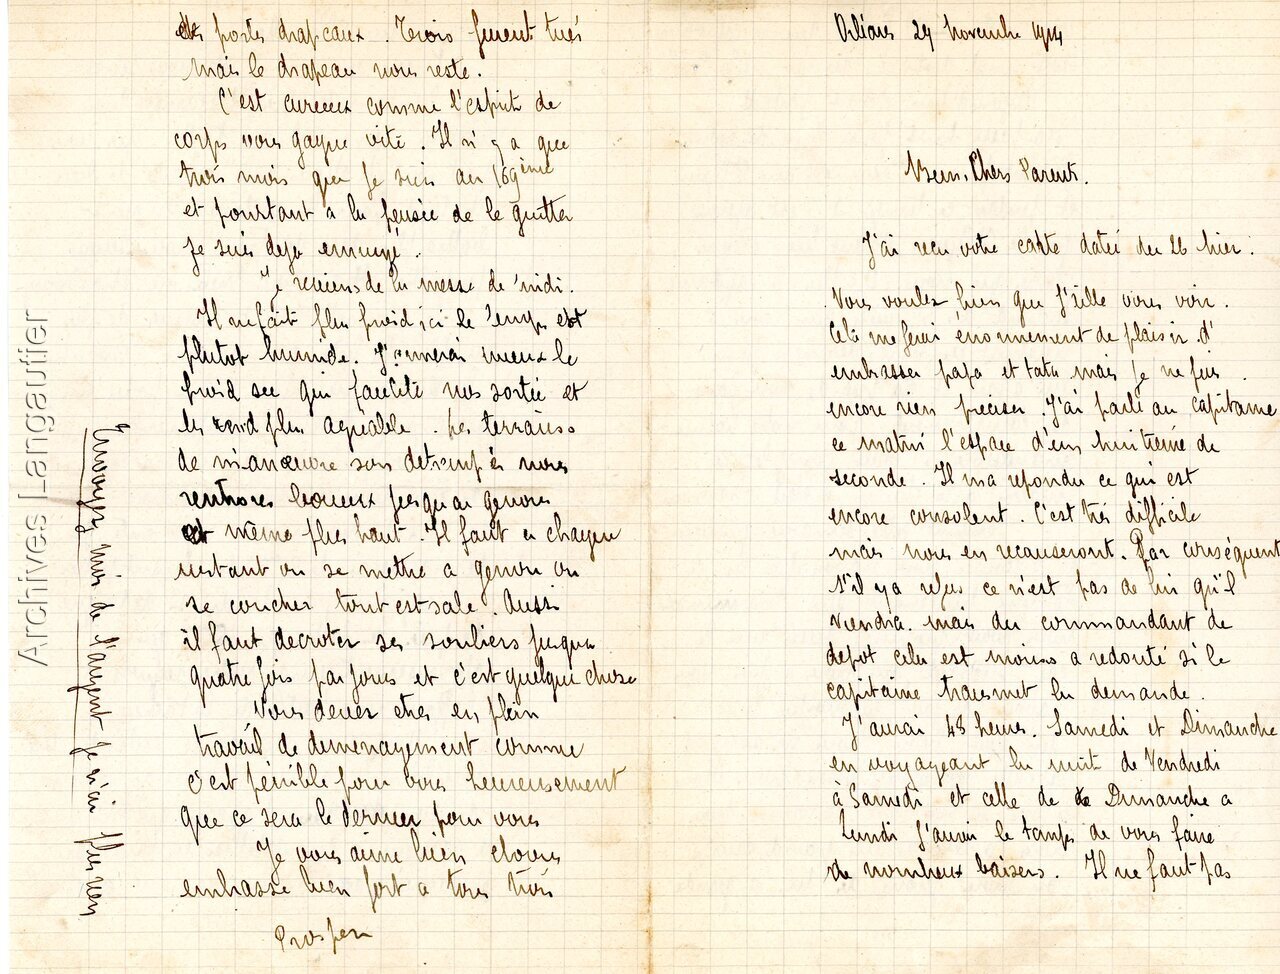 Orléans 29 Novembre 1914
Biens Chers Parents.
J'ai recu votre carte datée du 26 hier.
Vous voulez bien que j'aille vous voir.
Cela me ferai énormement de plaisir d'
embrasser papa et tata mais je ne puis
encore rien preciser. J'ai parlé au Capitaine
ce matin l'espace d'un huitieme de
seconde. Il m'a repondu ce qui est
encore consolent. C'est très difficile
mais nous en recauseront. Par conséquent
s'il y a refus ce n'est pas de lui qu'il
viendra. mais du commandant de
depot celui est moins a redouté si le
capitaine transmet la demande.
J'aurai 48 heures. Samedi et Dimanche
en voyageant la nuit de Vendredi
à Samedi et celle de Dimanche a
Lundi j'aurai le temps de vous faire
de nombreux baisers. Il ne faut pas
des portes drapeaux. Trois furent tués
mais le drapeau nous reste.
C'est curieux comme l'esprit de
corps vous gagne vite. Il n'y a que
trois mois que je suis au 169ème
et pourtant a la pensée de le quitter
je suis deja ennuyé.
Je reviens de la messe de midi.
Il ne fait plus froid ici le temps est
plutot humide. J'aimerai mieux le
froid sec qui facilite nos sortie et
les rend plus agréable. Les terrains
de manœuvre sons detrempés nous
rentrons boueux jusqu'au genoux
et même plus haut. Il faut a chaque
instant ou se mettre a genou ou
se coucher tout est sale. Aussi
il faut decroter ses souliers jusqua
quatre fois par jours et c'est quelque chose
Vous devez etres en plein
travail de demenagement comme
c'est pénible pour vous heureusement
que ce sera le dernier pour vous
Je vous aime bien et vous
embrasse bien fort a tous trois
Prosper
Envoyez moi de l'argent je n'ai plus rien
Archives Langautier